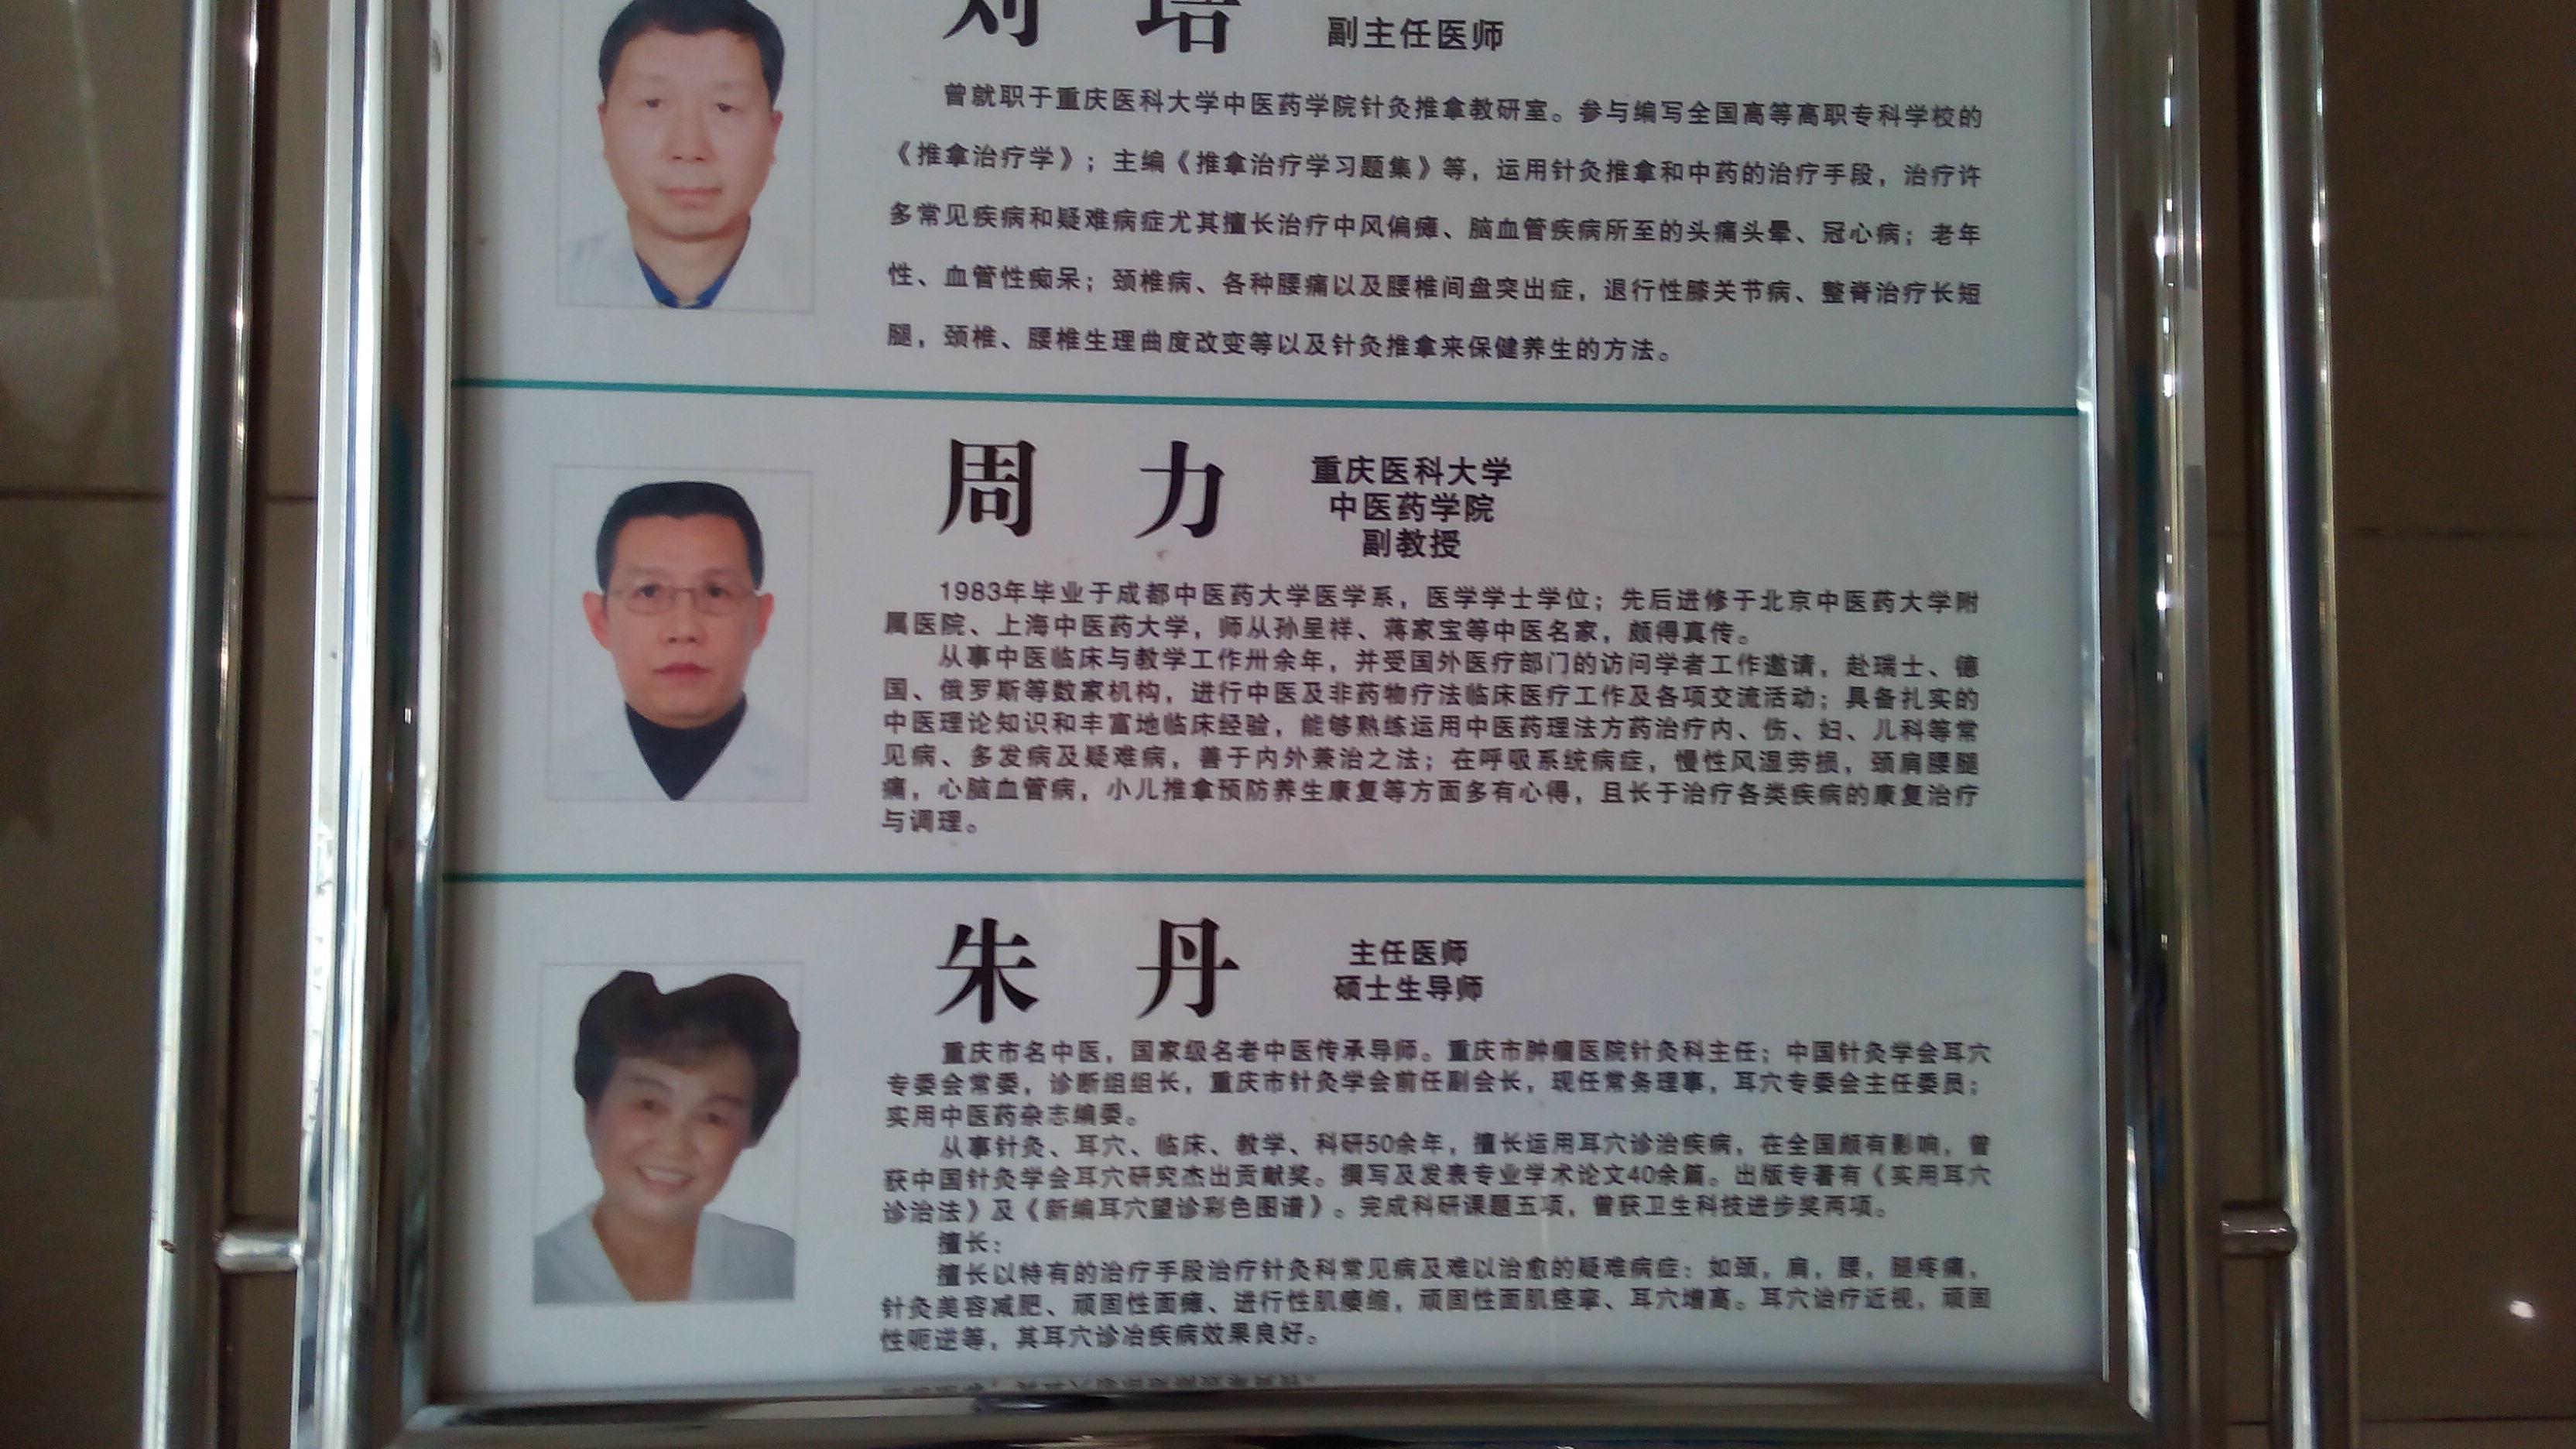 刘 培 副主任医师
曾就职于重庆医科大学中医药学院针灸推拿教研室。参与编写全国高等高职专科学校的
《推拿治疗学》；主编《推拿治疗学习题集》等，运用针灸推拿和中药的治疗手段，治疗许
多常见疾病和疑难病症尤其擅长治疗中风偏瘫、脑血管疾病所至的头痛头晕、冠心病；老年
性、血管性痴呆；颈椎病、各种腰痛以及腰椎间盘突出症，退行性膝关节病、整脊治疗长短
腿，颈椎、腰椎生理曲度改变等以及针灸推拿来保健养生的方法。
周 力
重庆医科大学
中医药学院
副教授
1983年毕业于成都中医药大学医学系，医学学士学位；先后进修于北京中医药大学附
属医院、上海中医药大学，师从孙呈祥、蒋家宝等中医名家，颇得真传。
从事中医临床与教学工作卅余年，并受国外医疗部门的访问学者工作邀请，赴瑞士、德
国、俄罗斯等数家机构，进行中医及非药物疗法临床医疗工作及各项交流活动；具备扎实的
中医理论知识和丰富地临床经验，能够熟练运用中医药理法方药治疗内、伤、妇、儿科等常
见病、多发病及疑难病，善于内外兼治之法；在呼吸系统病症，慢性风湿劳损，颈肩腰腿
痛，心脑血管病，小儿推拿预防养生康复等方面多有心得，且长于治疗各类疾病的康复治疗
与调理。
朱 丹
主任医师
硕士生导师
重庆市名中医，国家级名老中医传承导师。重庆市肿瘤医院针灸科主任；中国针灸学会耳穴
专委会常委，诊断组组长，重庆市针灸学会前任副会长，现任常务理事，耳穴专委会主任委员；
实用中医药杂志编委。
从事针灸、耳穴、临床、教学、科研50余年，擅长运用耳穴诊治疾病，在全国颇有影响，曾
获中国针灸学会耳穴研究杰出贡献奖。撰写及发表专业学术论文40余篇。出版专著有《实用耳穴
诊治法》及《新编耳穴望诊彩色图谱》。完成科研课题五项，曾获卫生科技进步奖两项。
擅长：
擅长以特有的治疗手段治疗针灸科常见病及难以治愈的疑难病症：如颈，肩，腰，腿疼痛，
针灸美容减肥、顽固性面瘫、进行性肌萎缩，顽固性面肌痉挛、耳穴增高。耳穴治疗近视，顽固
性呃逆等，其耳穴诊冶疾病效果良好。